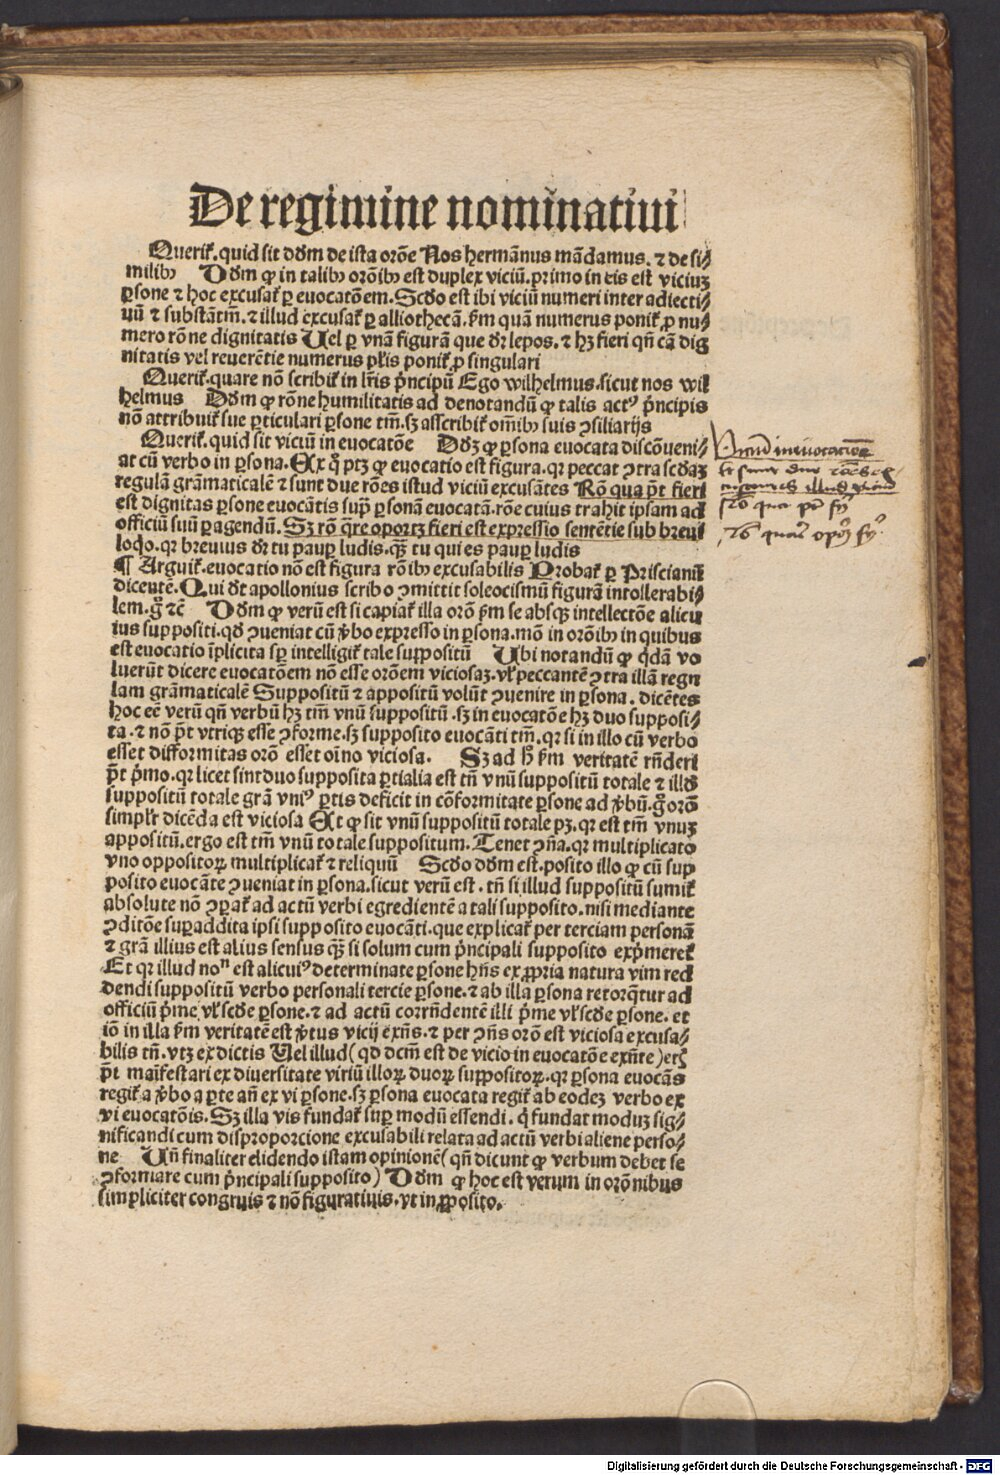 De regimine nominatiui
Querit̃. quid sit dd̃m de ista orõe Nos hermãnus mãdamus. ⁊ de si⸗
milibꝫ Dd̃m ꝙ in talibꝫ orõibꝫ est duplex viciũ. primo in eis est viciuꝫ
ꝑsone ⁊ hoc excusat̃ ꝑ euocatõem. Scd̃o est ibi viciũ numeri inter adiecti⸗
uũ ⁊ substãtm̃. ⁊ illud excusat̃ ꝑ alliothecã. ẜm quã numerus ponit̃ ꝓ nu⸗
mero rõne dignitatis Uel ꝑ vnã figurã que dr̃ lepos. ⁊ hꝫ fieri qñ cã dig
nitatis vel reuerẽtie numerus pl̃is ponit̃ ꝓ singulari
Querit̃. quare nõ scribit̃ in lr̃is p̃ncipũ Ego wilhelmus. sicut nos wil
helmus Dd̃m ꝙ rõne humilitatis ad denotandũ ꝙ talis actꝰ p̃ncipis
nõ attribuit̃ sue ꝑticulari ꝑsone tm̃. sꝫ asscribit̃ om̃ibꝫ suis ꝯsiliarijs
Querit̃. quid sit viciũ in euocatõe Dd̃ꝫ ꝙ ꝑsona euocata discõueni⸗
at cũ verbo in ꝑsona. Ex q̊ ptꝫ ꝙ euocatio est figura. qꝛ peccat ꝯtra scd̃aꝫ
regulã grãmaticalẽ ⁊ sunt due rões istud viciũ excusãtes Rõ qua p̃t fieri
est dignitas ꝑsone euocãtis sup̃ ꝑsonã euocatã. rõe cuius trahit ipsam ad
officiũ suũ ꝑagendũ. Sꝫ rõ q̃re oportꝫ fieri est expressio sentẽtie sub breui
loq̃o. qꝛ breuius dr̃ tu pauꝑ ludis. qꝫ̃ tu qui es pauꝑ ludis
¶ Arguit̃. euocatio nõ est figura rõibꝫ excusabilis Probat̃ ꝑ Priscianũ
dicentẽ. Qui d̃t apollonius scribo ꝯmittit soleocismũ figurã intollerabi⸗
lem. g̊ ⁊c̃ Dd̃m ꝙ verũ est si capiat̃ illa orõ ẜm se absqꝫ intellectõe alicu
ius suppositi. qd̃ ꝯueniat cũ v̾bo expresso in ꝑsona. mõ in orõibꝫ in quibus
est euocatio ĩplicita sꝑ intelligit̃ tale suppositũ Ubi notandũ ꝙ q̃dã vo
luerũt dicere euocatõem nõ esse orõem viciosaꝫ. vl̾ peccantẽ ꝯtra illã regu
lam grãmaticalẽ Suppositũ ⁊ appositũ volũt ꝯuenire in ꝑsona. dicẽtes
hoc eẽ verũ qñ verbũ hꝫ tm̃ vnũ suppositũ. sꝫ in euocatõe hꝫ duo supposi⸗
ta. ⁊ nõ p̃t vtriqꝫ esse ꝯforme. sꝫ supposito euocãti tm̃. qꝛ si in illo cũ verbo
esset difformitas orõ esset oĩno viciosa. Sꝫ ad h̊ ẜm veritatẽ rñderi
p̃t p̾mo. qꝛ licet sint duo supposita ꝑtialia est tñ vnũ suppositũ totale ⁊ illd̃
suppositũ totale grã vniꝰ ꝑtis deficit in cõformitate ꝑsone ad v̾bũ. g̊ orõ
simpl̾r dicẽda est viciosa Et ꝙ sit vnũ suppositũ totale pꝫ. qꝛ est tm̃ vnuꝫ
appositũ. ergo est tm̃ vnũ totale suppositum. Tenet ꝯña. qꝛ multiplicato
vno oppositoꝝ multiplicat̃ ⁊ reliquũ Scd̃o dd̃m est. posito illo ꝙ cũ sup
posito euocãte ꝯueniat in ꝑsona. sicut verũ est. tñ si illud suppositũ sumit̃
absolute nõ ꝯꝑat̃ ad actũ verbi egredientẽ a tali supposito. nisi mediante
ꝯditõe suꝑaddita ipsi supposito euocãti. que explicat̃ per terciam personã
⁊ grã illius est alius sensus qꝫ̃ si solum cum p̃ncipali supposito exp̾meret̃
Et qꝛ illud noⁿ est alicuiꝰ determinate ꝑsone hñs ex ꝓpria natura vim red
dendi suppositũ verbo personali tercie ꝑsone. ⁊ ab illa ꝑsona retorq̃tur ad
officiũ p̾me vl̾ scd̃e ꝑsone. ⁊ ad actũ corrñdentẽ illi p̾me vl̾ scd̃e ꝑsone. et
iõ in illa ẜm veritatẽ est v̾tus vicij exñs. ⁊ per ꝯñs orõ est viciosa excusa⸗
bilis tñ. vtꝫ ex dictis Uel illud ( qd̃ dcm̃ est de vicio in euocatõe exñte ) etꝫ
p̃t maĩfestari ex diuersitate viriũ illoꝝ duoꝝ suppositoꝝ. qꝛ ꝑsona euocãs
regit̃ a v̾bo a ꝑte añ ex vi ꝑsone. sꝫ ꝑsona euocata regit̃ ab eodeꝫ verbo ex
vi euocatõis. Sꝫ illa vis fundat̃ suꝑ modũ essendi. q̃ fundat moduꝫ sig⸗
nificandi cum disproporcione excusabili relata ad actũ verbi aliene perso⸗
ne Uñ finaliter elidendo istam opinionẽ ( qñ dicunt ꝙ verbum debet se
ꝯformare cum p̃ncipali supposito ) Dd̃m ꝙ hoc est verum in orõnibus
simpliciter congruis ⁊ nõ figuratiuis. vt in ꝓposito.
Viciũ in euocatione
Digitalisierung gefördert durch die Deutsche Forschungsgemeinschaft - DFG